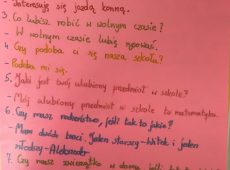 Interesuję się jazdą konną.
3. Co lubisz robić w wolnym czasie?
- W wolnym czasie lubię rysować.
4. Czy podoba ci się nasza szkoła?
- Podoba mi się.
5. Jaki jest twój ulubiony przedmiot w szkole?
- Mój ulubiony przedmiot w szkole to matematyka.
6. Czy masz rodzeństwo, jeśli tak to jakie?
- Mam dwóch braci. Jeden starszy - i jeden
młodszy - Aleksander
7. Czy masz zwierzątko w domu, jeśli tak